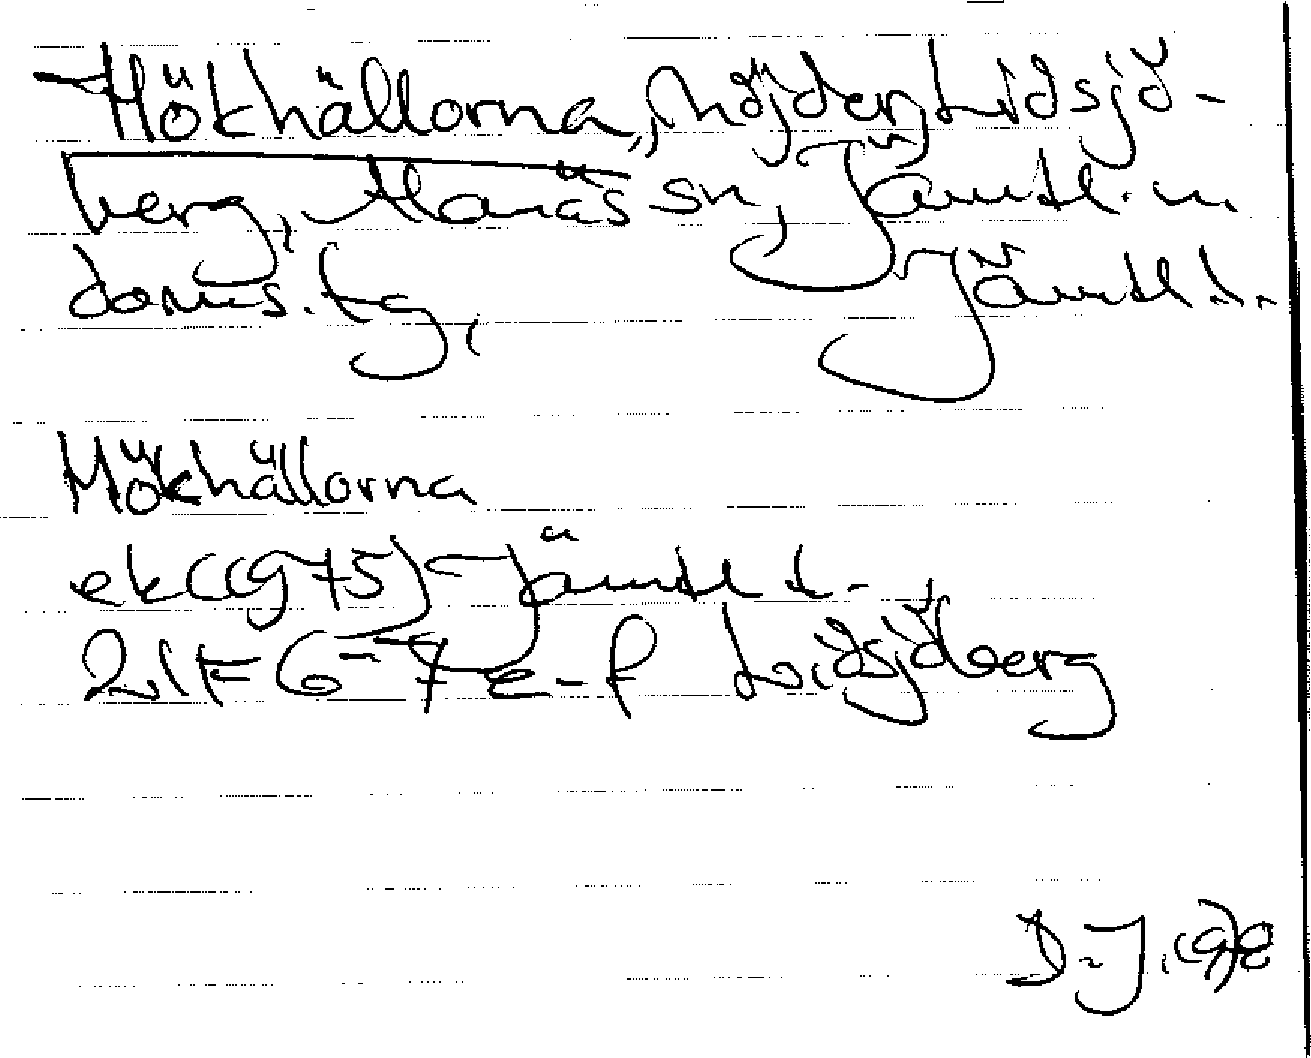 Hökhällorna, höjder, Lidsjö-
berg, Alanäs sn, Jämtl. n.
doms. tg, Jämtl. l.
Hökhällorna
ek (1975) Jämtl l.
21F 6-7 e-f Lidsjöberg
D.J. 1978